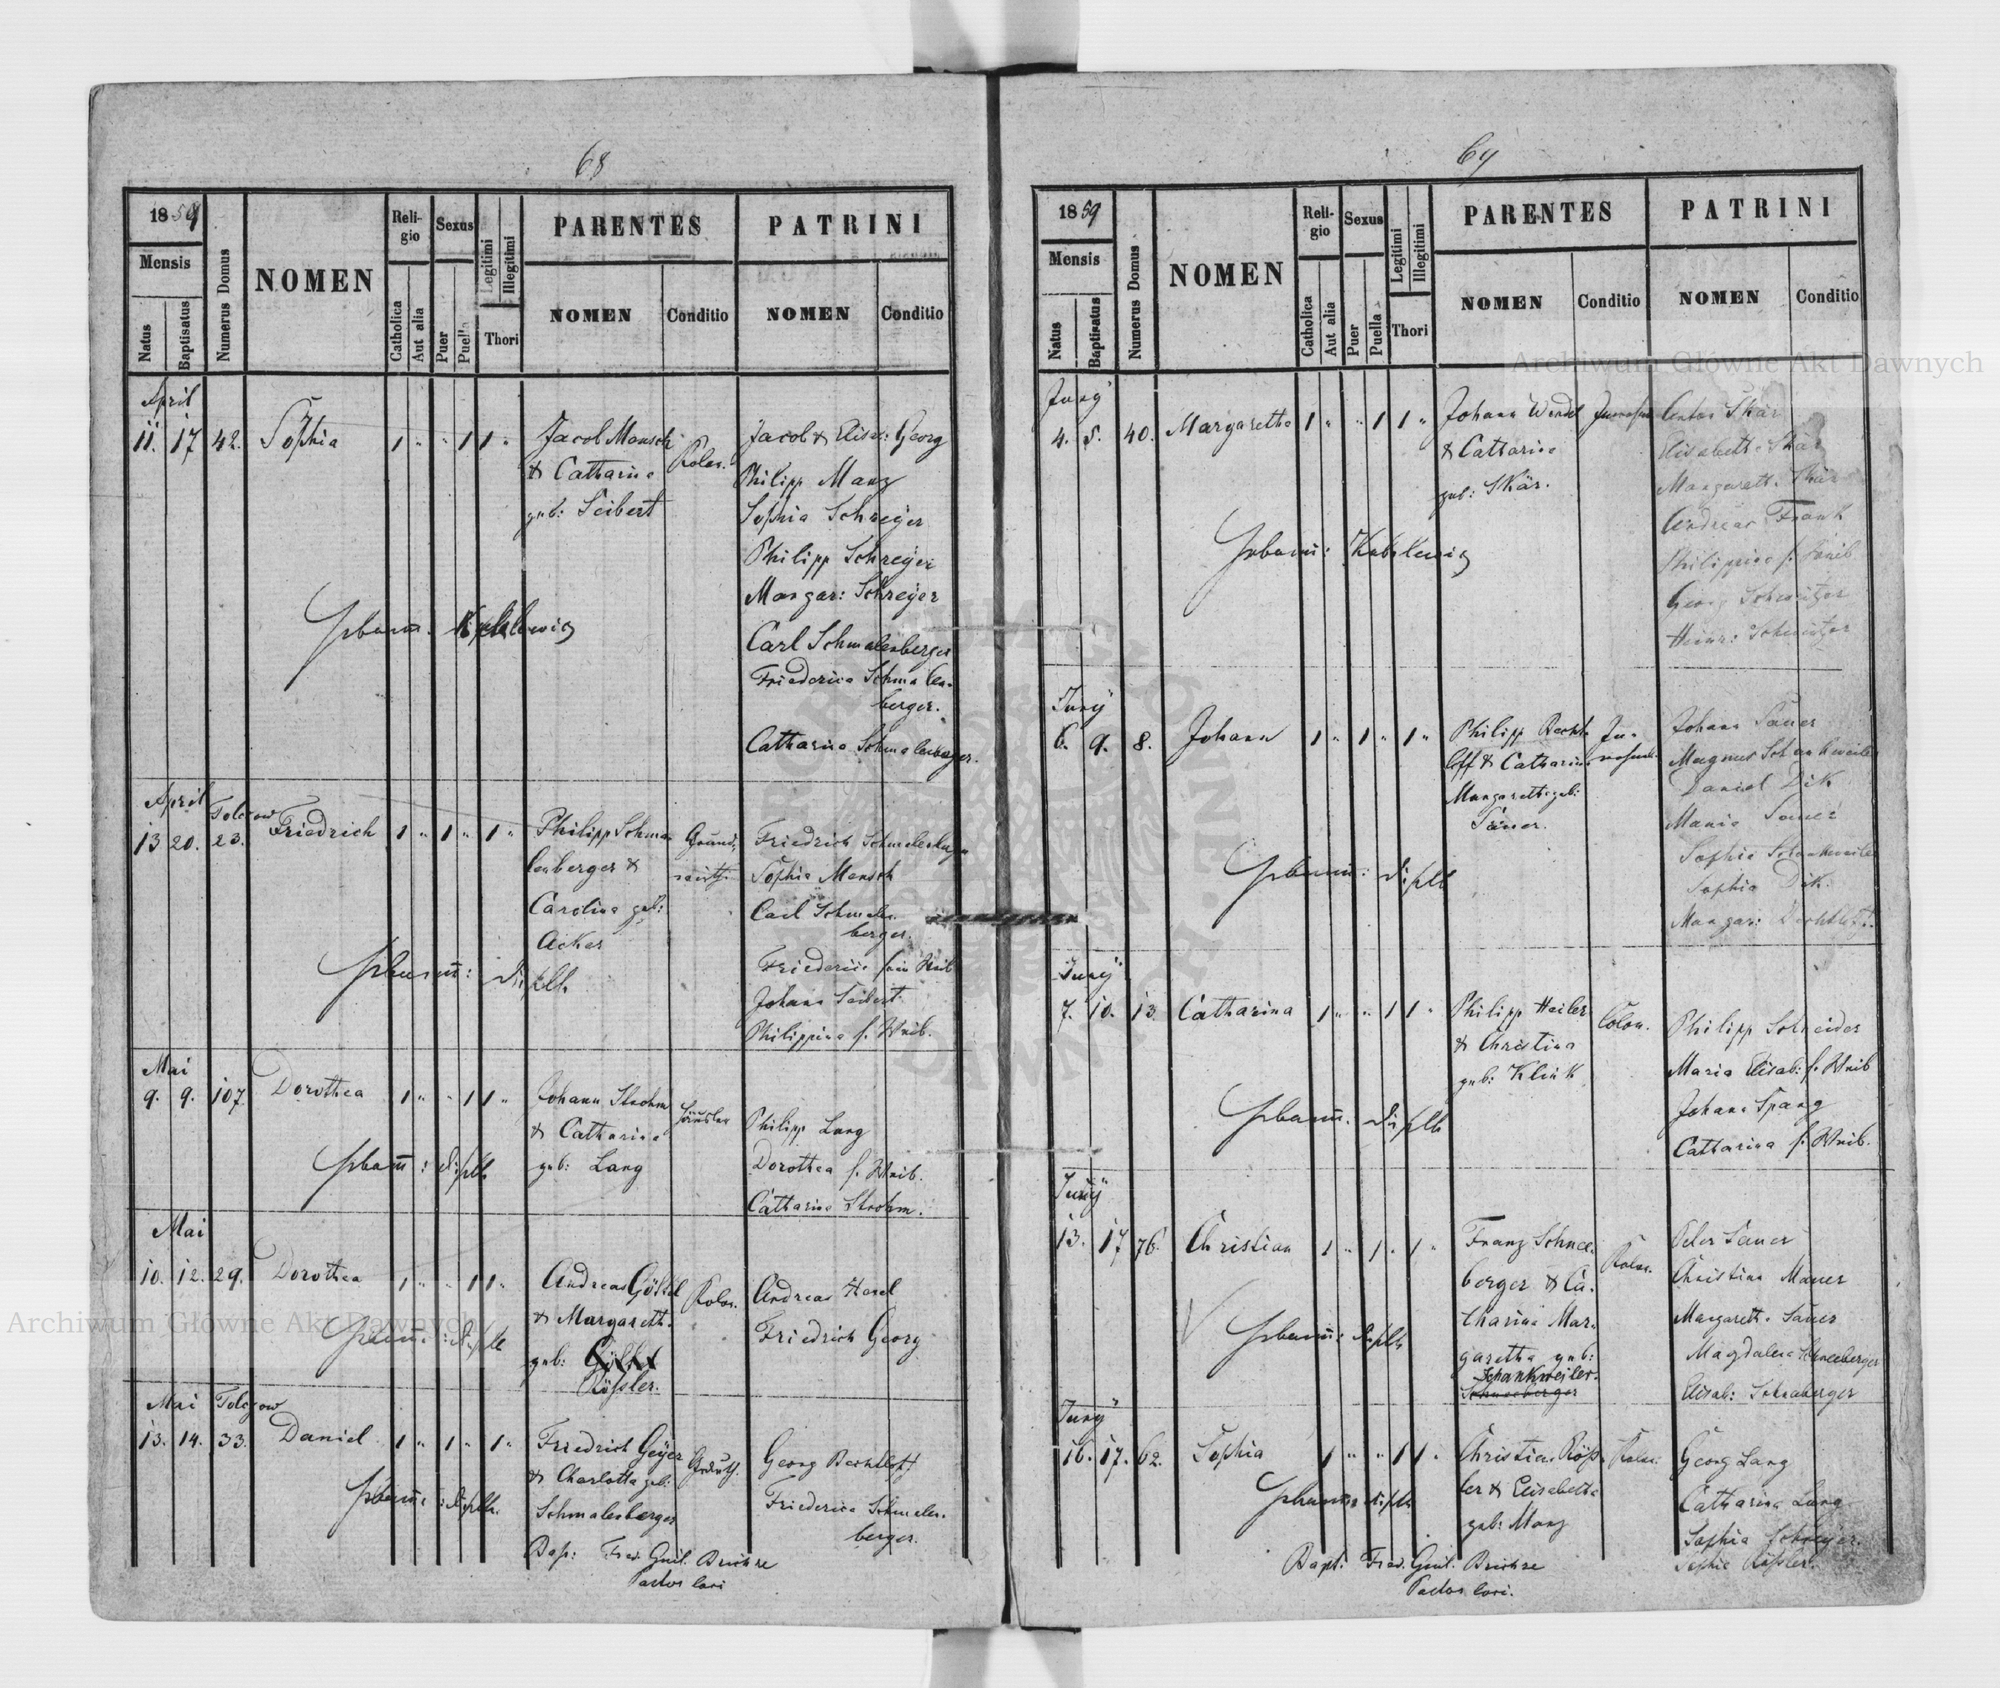 68
1859
Mensis
Natus
Baptisatus
Numerus Domus
NOMEN
Religio
Catholica
Aut alia
Sexus
Puer
Puella
Legitimi
Illegitimi
Thori
PARENTES
NOMEN
Conditio
PATRINI
NOMEN
Conditio
April
11. 17 42. Sophia 1 " " 1 1 "
Jacob Mansch
& Catharina
geb: Seibert
Kolon.
Jacob & Elise: Georg
Philipp Manz
Sophia Schreÿer
Philipp Schreÿer
Margar: Schreÿer
Carl Schmalenberger
Friederica Schmalen-
berger.
Catharina Schmalenberger.
April
13 20. 23. Friedrich 1 " 1 " 1 "
Philipp Schma-
lenberger &
Carolina geb:
Acker
Grund-
wirth
Friedrich Schmalenberger
Sophia Mansch
Carl Schmalen-
berger.
Friederica sein Weib
Johann Seibert
Philippina s. Weib.
Mai
9. 9. 107. Dorothea 1 " " 1 1 "
Johann Strohm
& Catharina
geb: Lang
Häusler
Philipp Lang
Dorothea s. Weib.
Catharina Strohm.
Mai
10. 12. 29. Dorothea 1 " " 1 1 "
Andreas Göttel
& Margareth.
geb: Göttel
Rößler.
Kolon.
Andreas Hasel
Friedrich Georg
Mai
13. 14. 33. Daniel 1 " 1 " 1 "
Friedrich Geÿer
& Charlotta geb:
Schmalenberger
Georg Bechtloff
Friederica Schmalen-
berger.
Bap: Fred. Guil. Brichze
Pastor loci
69
1859
Mensis
Natus
Baptisatus
Numerus Domus
NOMEN
Religio
Catholica
Aut alia
Sexus
Puer
Puella
Legitimi
Illegitimi
Thori
PARENTES
NOMEN
Conditio
PATRINI
NOMEN
Conditio
Junÿ
4. 5. 40. Margaretha 1 " " 1 1 "
Johann Wendel
& Catharina
geb: Skär.
Anton Skär
Elisabetha Skär
Margareth. Skär
Andreas Frank
Philippina s. Weib
Georg Schweitzer
Heinr: Schweitzer
Junÿ
6. 9. 8. Johann 1 " 1 " 1 "
Philipp Becht-
loff & Catharina
Margaretha geb:
Sauer.
Johann Sauer
Magnus Schankweiler
Daniel Dik
Maria Sauer
Sophia Schankweiler
Sophia Dik.
Margar: Bechtloff.
Junÿ
7. 10. 13. Catharina 1 " " 1 1 "
Philipp Heiler
& Christina
geb: Klink
Colon.
Philipp Schneider
Maria Elisab: s. Weib
Johann Spang
Catharina s. Weib.
Junÿ
13. 17 76. Christian 1 " 1 " 1 "
Franz Schnee-
berger & Ca-
tharina Mar-
garetha geb:
Schankweiler.
Schneeberger
Kolon.
Peter Sauer
Christina Mauer
Margaretha Sauer
Magdalena Schneeberger
Elisab: Schneeberger
Junÿ
16. 17. 62. Sophia 1 " " 1 1 "
Christian Röß-
ler & Elisabetha
geb: Manz
Kolon.
Georg Lang
Catharina Lang
Sophia Schreÿer.
Sophia Rößler.
Bapt. Fred. Guil. Brichze
Pastor loci.
Archiwum Główne Akt Dawnych
Archiwum Główne Akt Dawnych